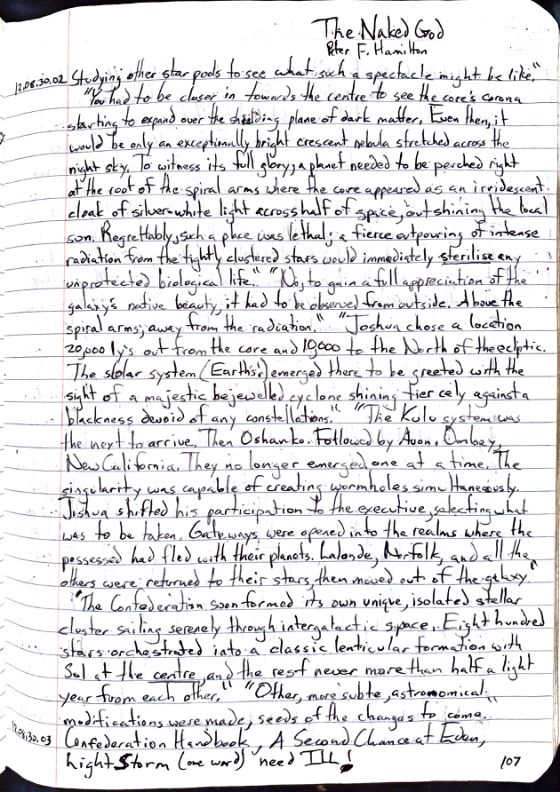 The Naked God
Peter F. Hamilton
12.08.30.02 Studying other star pods to see what such a spectacle might be like."
"You had to be closer in towards the centre to see the core's corona
starting to expand over the shielding plane of dark matter. Even then, it
would be only an exceptionally bright crescent nebula stretched across the
night sky. To witness its full glory, a planet needed to be perched right
at the root of the spiral arms where the core appeared as an irridescent
cloak of silver-white light across half of space, outshining the local
son. Regrettably, such a place was lethal; a fierce outpouring of intense
radiation from the tightly clustered stars would immediately sterilise any
unprotected biological life." "No, to gain a full appreciation of the
galaxy's native beauty, it had to be observed from outside. Above the
spiral arms, away from the radiation." "Joshua chose a location
20,000 ly's out from the core and 10,000 to the North of the ecliptic.
The solar system (Earth's) emerged there to be greeted with the
sight of a majestic bejewelled cyclone shining fiercely against a
blackness devoid of any constellations." "The Kulu system was
the next to arrive. Then Oshanko. Followed by Avon. Ombey,
New California. They no longer emerged one at a time. The
singularity was capable of creating wormholes simultaneously.
Joshua shifted his participation to the executive, selecting what
was to be taken. Gateways were opened into the realms where the
possessed had fled with their planets. Lalonde, Norfolk, and all the
others were returned to their stars, then moved out of the galaxy."
"The Confederation soon formed its own unique, isolated stellar
cluster sailing serenely through intergalactic space. Eight hundred
stars orchestrated into a classic lenticular formation with
Sol at the centre, and the rest never more than half a light
year from each other." "Other, more subte, astronomical
modifications were made, seeds of the changes to come."
12.08.30.03 Confederation Handbook, A Second Chance at Eden,
Light Storm (one word) need ILL!
107